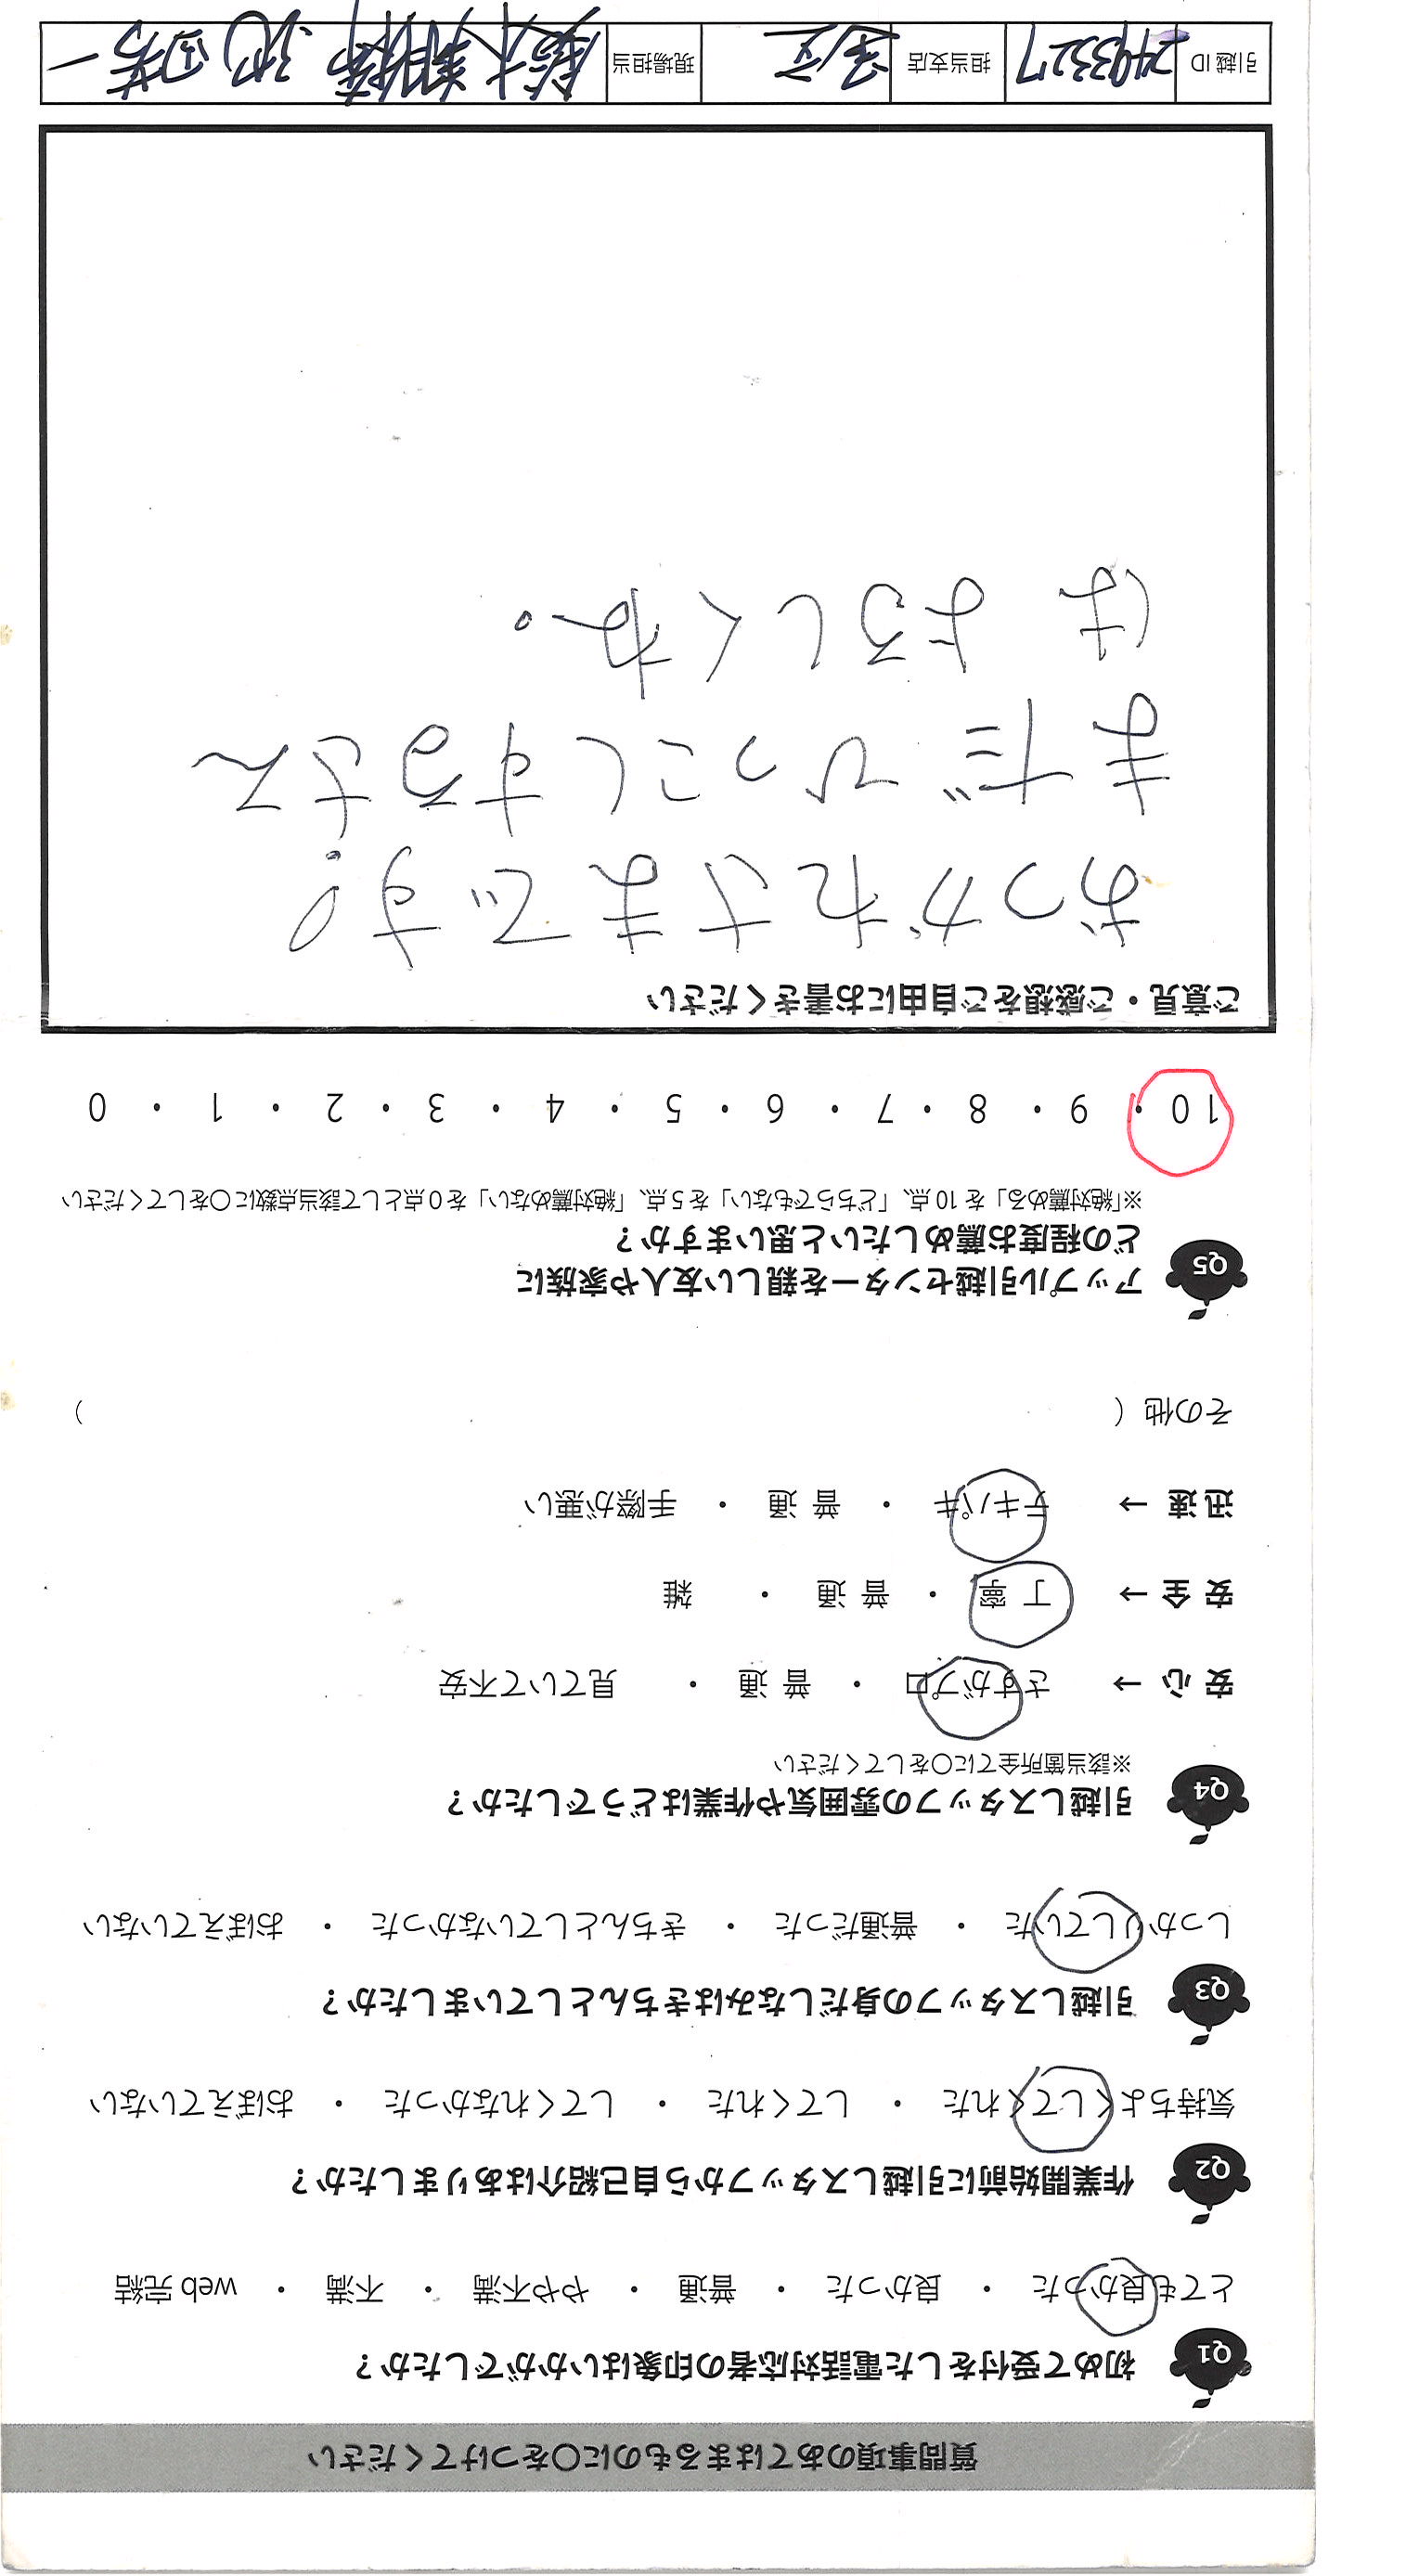 質問事項のあてはまるものに〇をつけてください
Q1 初めて受付をした電話対応者の印象はいかがでしたか？
とても良かった ・ 良かった ・ 普通 ・ やや不満 ・ 不満 ・ web完結
Q2 作業開始前に引越しスタッフから自己紹介はありましたか？
気持ちよくしてくれた ・ してくれた ・ してくれなかった ・ おぼえていない
Q3 引越しスタッフの身だしなみはきちんとしていましたか？
しっかりしていた ・ 普通だった ・ きちんとしていなかった ・ おぼえていない
Q4 引越しスタッフの雰囲気や作業はどうでしたか？
※該当箇所全てに〇をしてください
安心 → さすがプロ ・ 普通 ・ 見ていて不安
安全 → 丁寧 ・ 普通 ・ 雑
迅速 → テキパキ ・ 普通 ・ 手際が悪い
その他（ ）
Q5 アップル引越センターを親しい友人や家族に
どの程度お薦めしたいと思いますか？
※「絶対薦める」を10点、「どちらでもない」を5点、「絶対薦めない」を0点として該当点数に〇をしてください
10 ・ 9 ・ 8 ・ 7 ・ 6 ・ 5 ・ 4 ・ 3 ・ 2 ・ 1 ・ 0
ご意見・ご感想をご自由にお書きください
おつかれさまです!
まだひっこしするよて
は よろしくね。
引越ID 2493327 担当支店 現場担当 鈴木